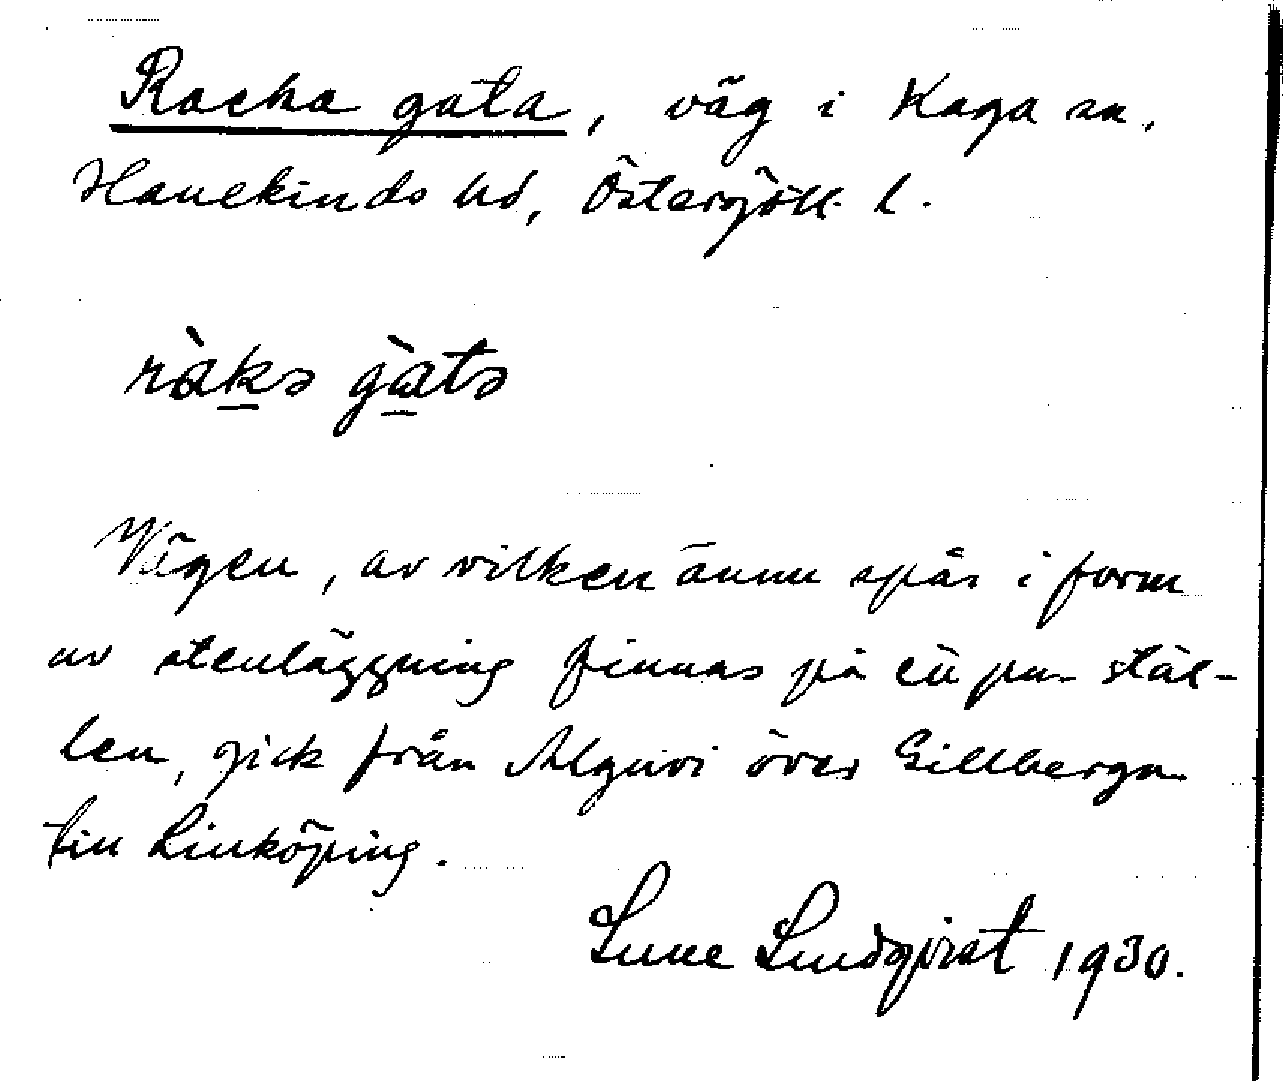 Racka gata, väg i Kaga sn,
Hanekinds hd, Östergötl. l.
ràkə gàtə
Vägen, av vilken ännu spår i form
av stenläggning finnas på ett par stäl-
len, gick från Alguvi över Gillberga
till Linköping.
Sune Lindqvist 1930.